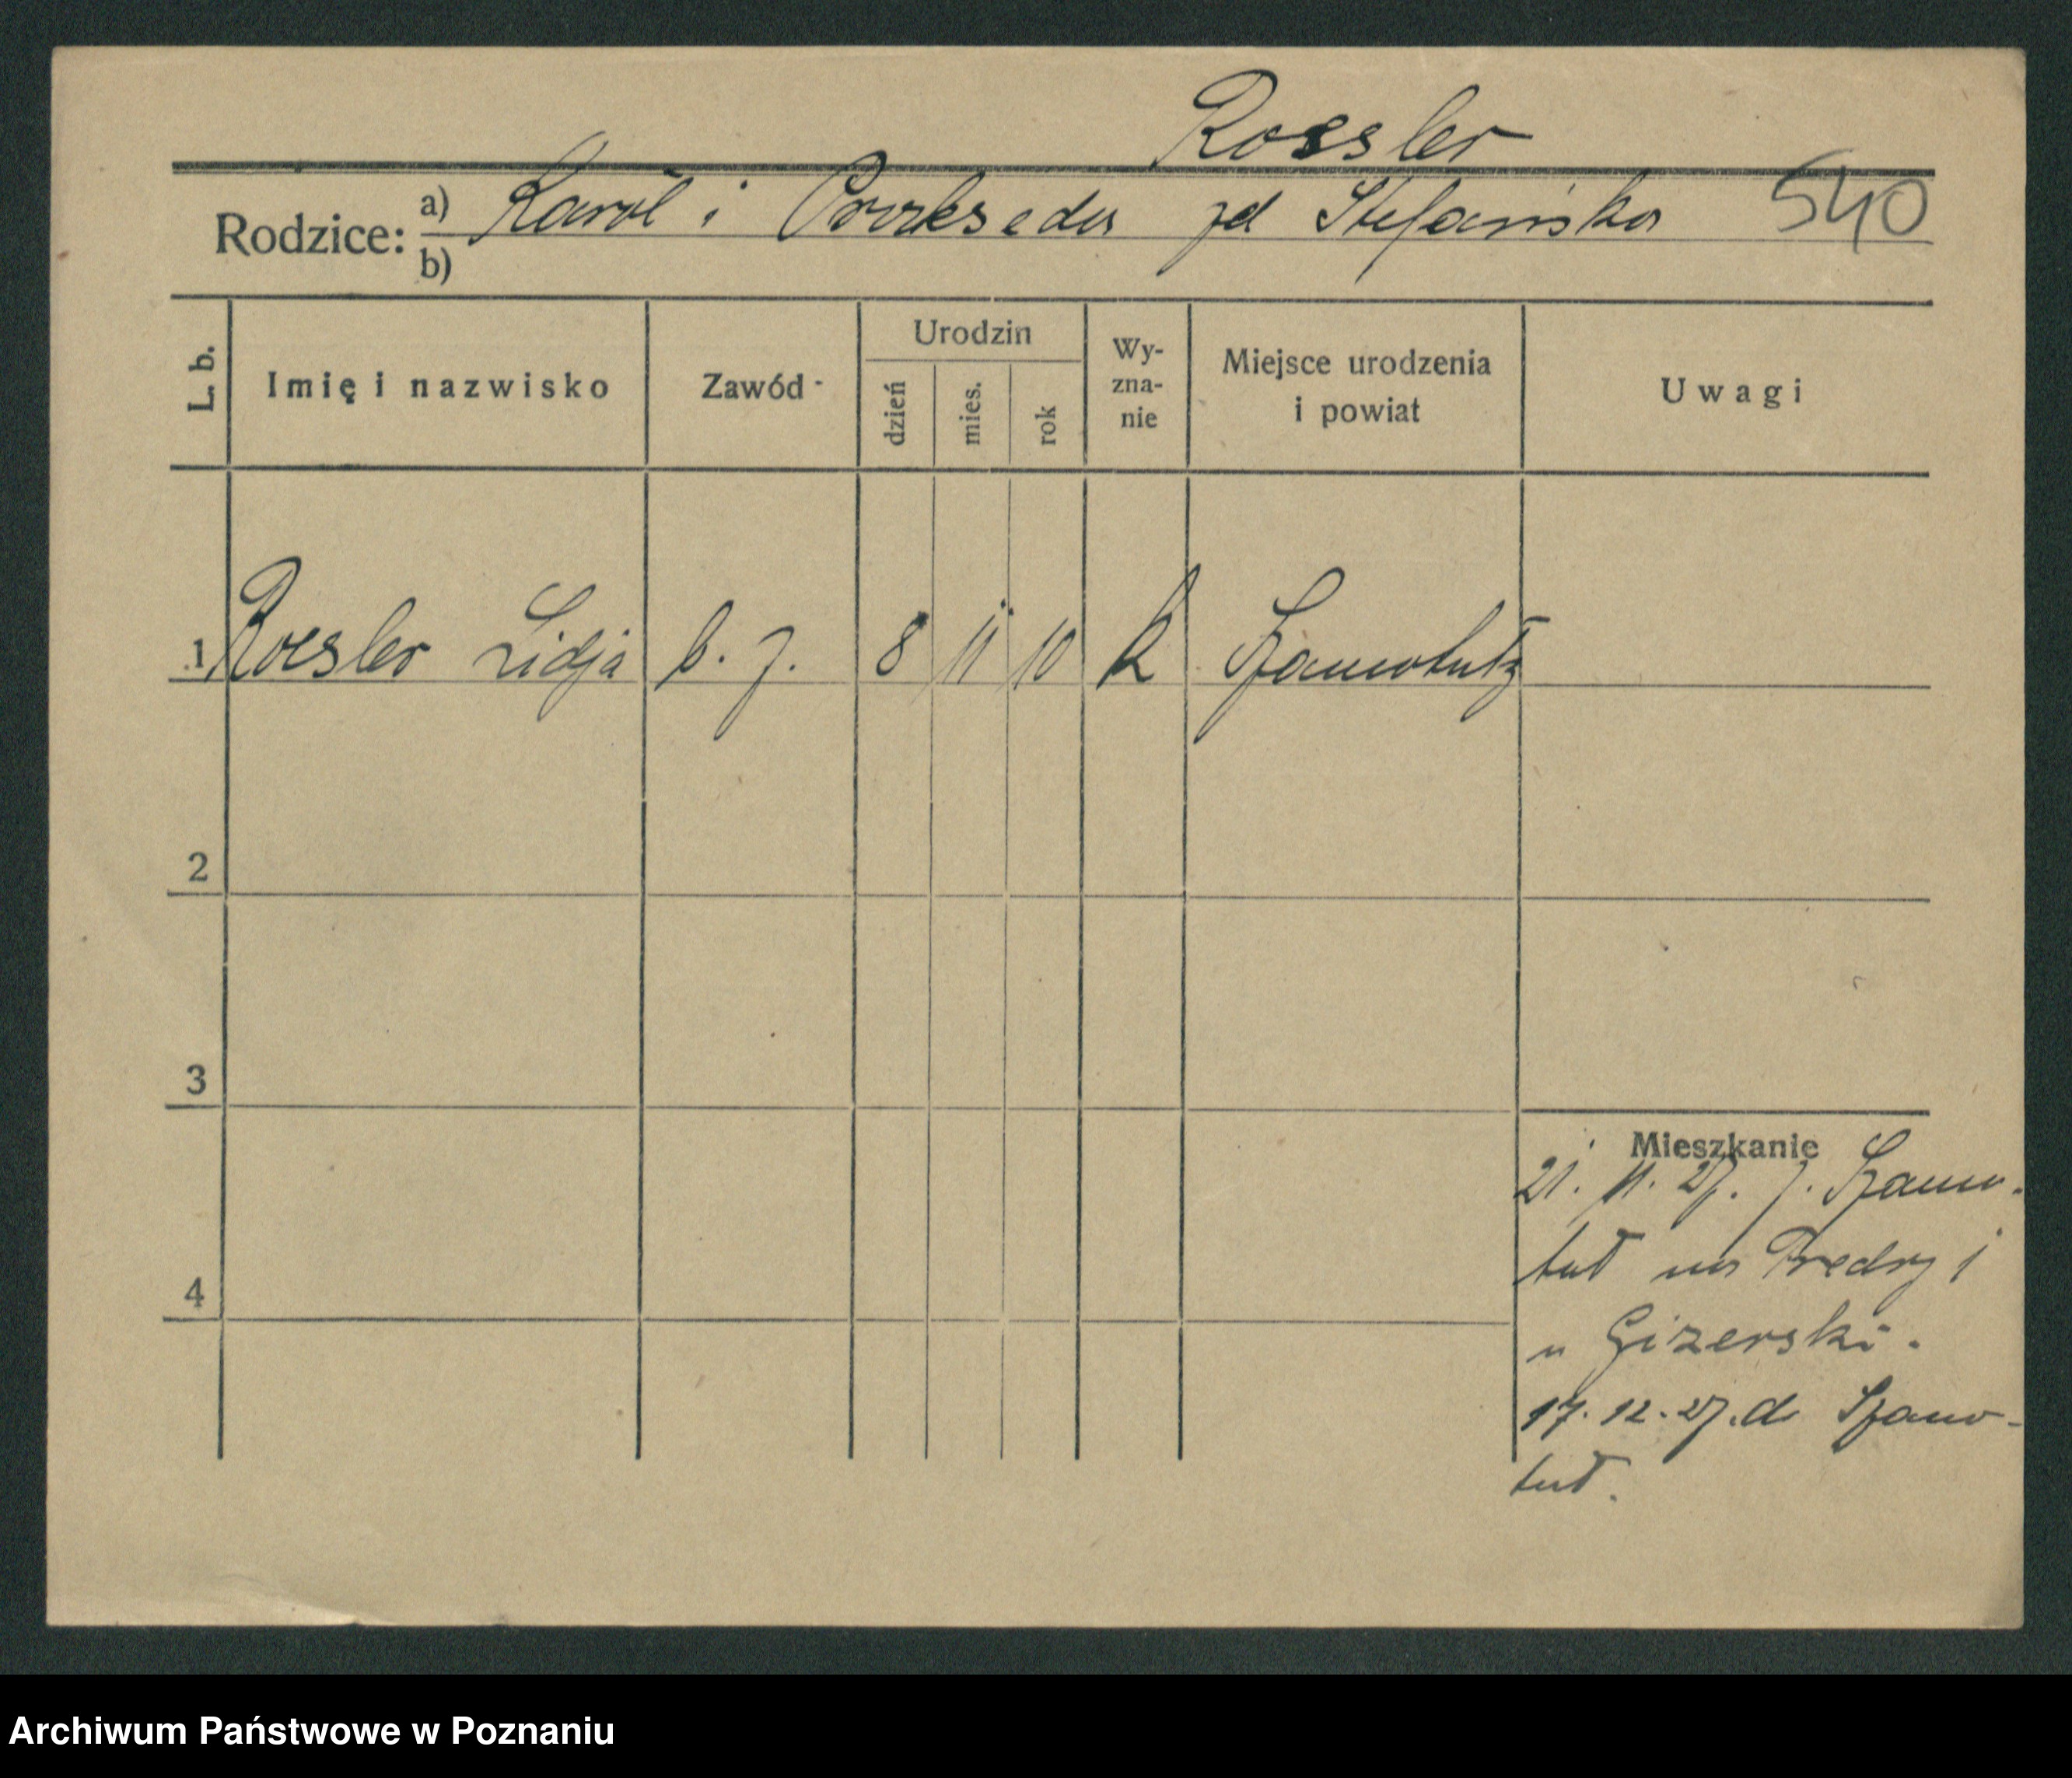 Rossler
Rodzice: a) Karol i Prakseda zd Stefańska 540
b)
L. b. Imię i nazwisko Zawód Urodzin dzień mies. rok Wy-zna-nie Miejsce urodzenia i powiat Uwagi
1 Roesler Lidja b. z. 8 11 10 k Szamotuły
2
3
4
Mieszkanie
21. 11. 27. z. Szamo-
tuł na Fredry 1
u Gizerski.
17. 12. 27. do Szamo-
tuł.
Archiwum Państwowe w Poznaniu